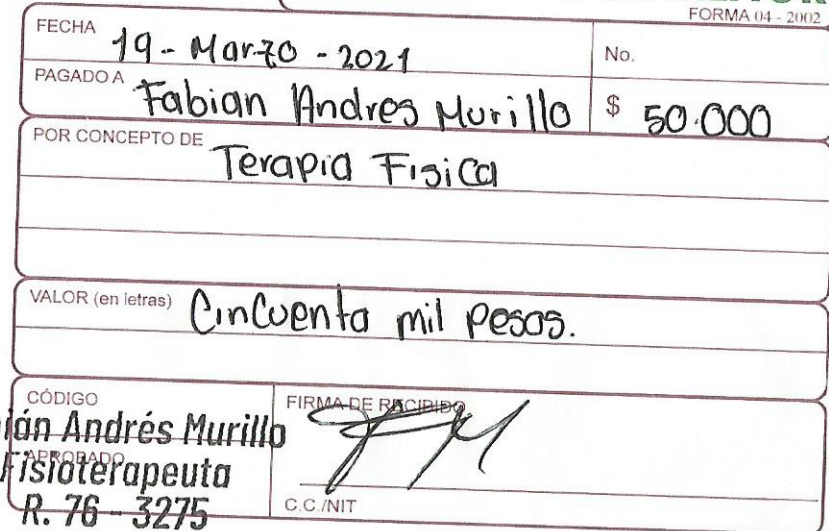 FORMA 04 - 2002
FECHA 19 - Marzo - 2021
No.
PAGADO A Fabian Andres Murillo $ 50.000
POR CONCEPTO DE Terapia Fisica
VALOR (en letras) Cincuenta mil pesos.
CÓDIGO
FIRMA DE RECIBIDO
ián Andrés Murillo
APROBADO
Fisioterapeuta
R. 76 - 3275
C.C./NIT